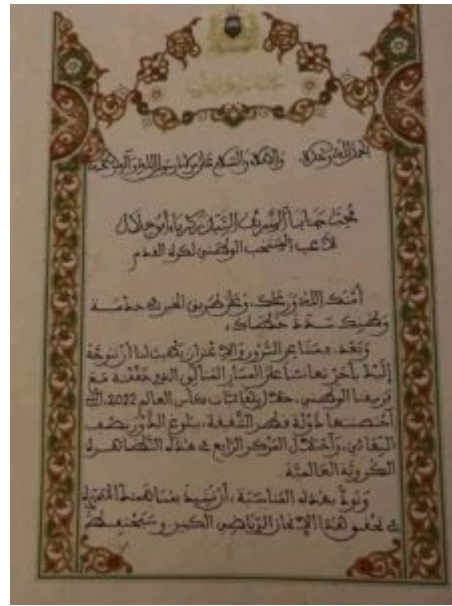 الحمد لله وحده، والصلاة والسلام على مولانا رسول الله وآله وصحبه
محب جنابنا الشريف السيد زكرياء أبو خلال
لاعب المنتخب الوطني لكرة القدم
أمنك الله ورعاك، وعلى طريق الخير في خدمة
وطنك سدد خطاك،
وبعد، فمشاعر السرور والاعتزاز يطيب لنا أن نتوجه
إليك بأحر تهانئنا على المسار المثالي الذي حققته مع
فريقنا الوطني، خلال نهائيات كأس العالم 2022، التي
احتضنتها دولة قطر الشقيقة، ببلوغ الدور نصف
النهائي، واحتلال المركز الرابع في هذه التظاهرة
الكروية العالمية.
ونود بهذه المناسبة، أن نشيد بمساهمتك المتميزة
في تحقيق هذا الإنجاز الرياضي الكبير